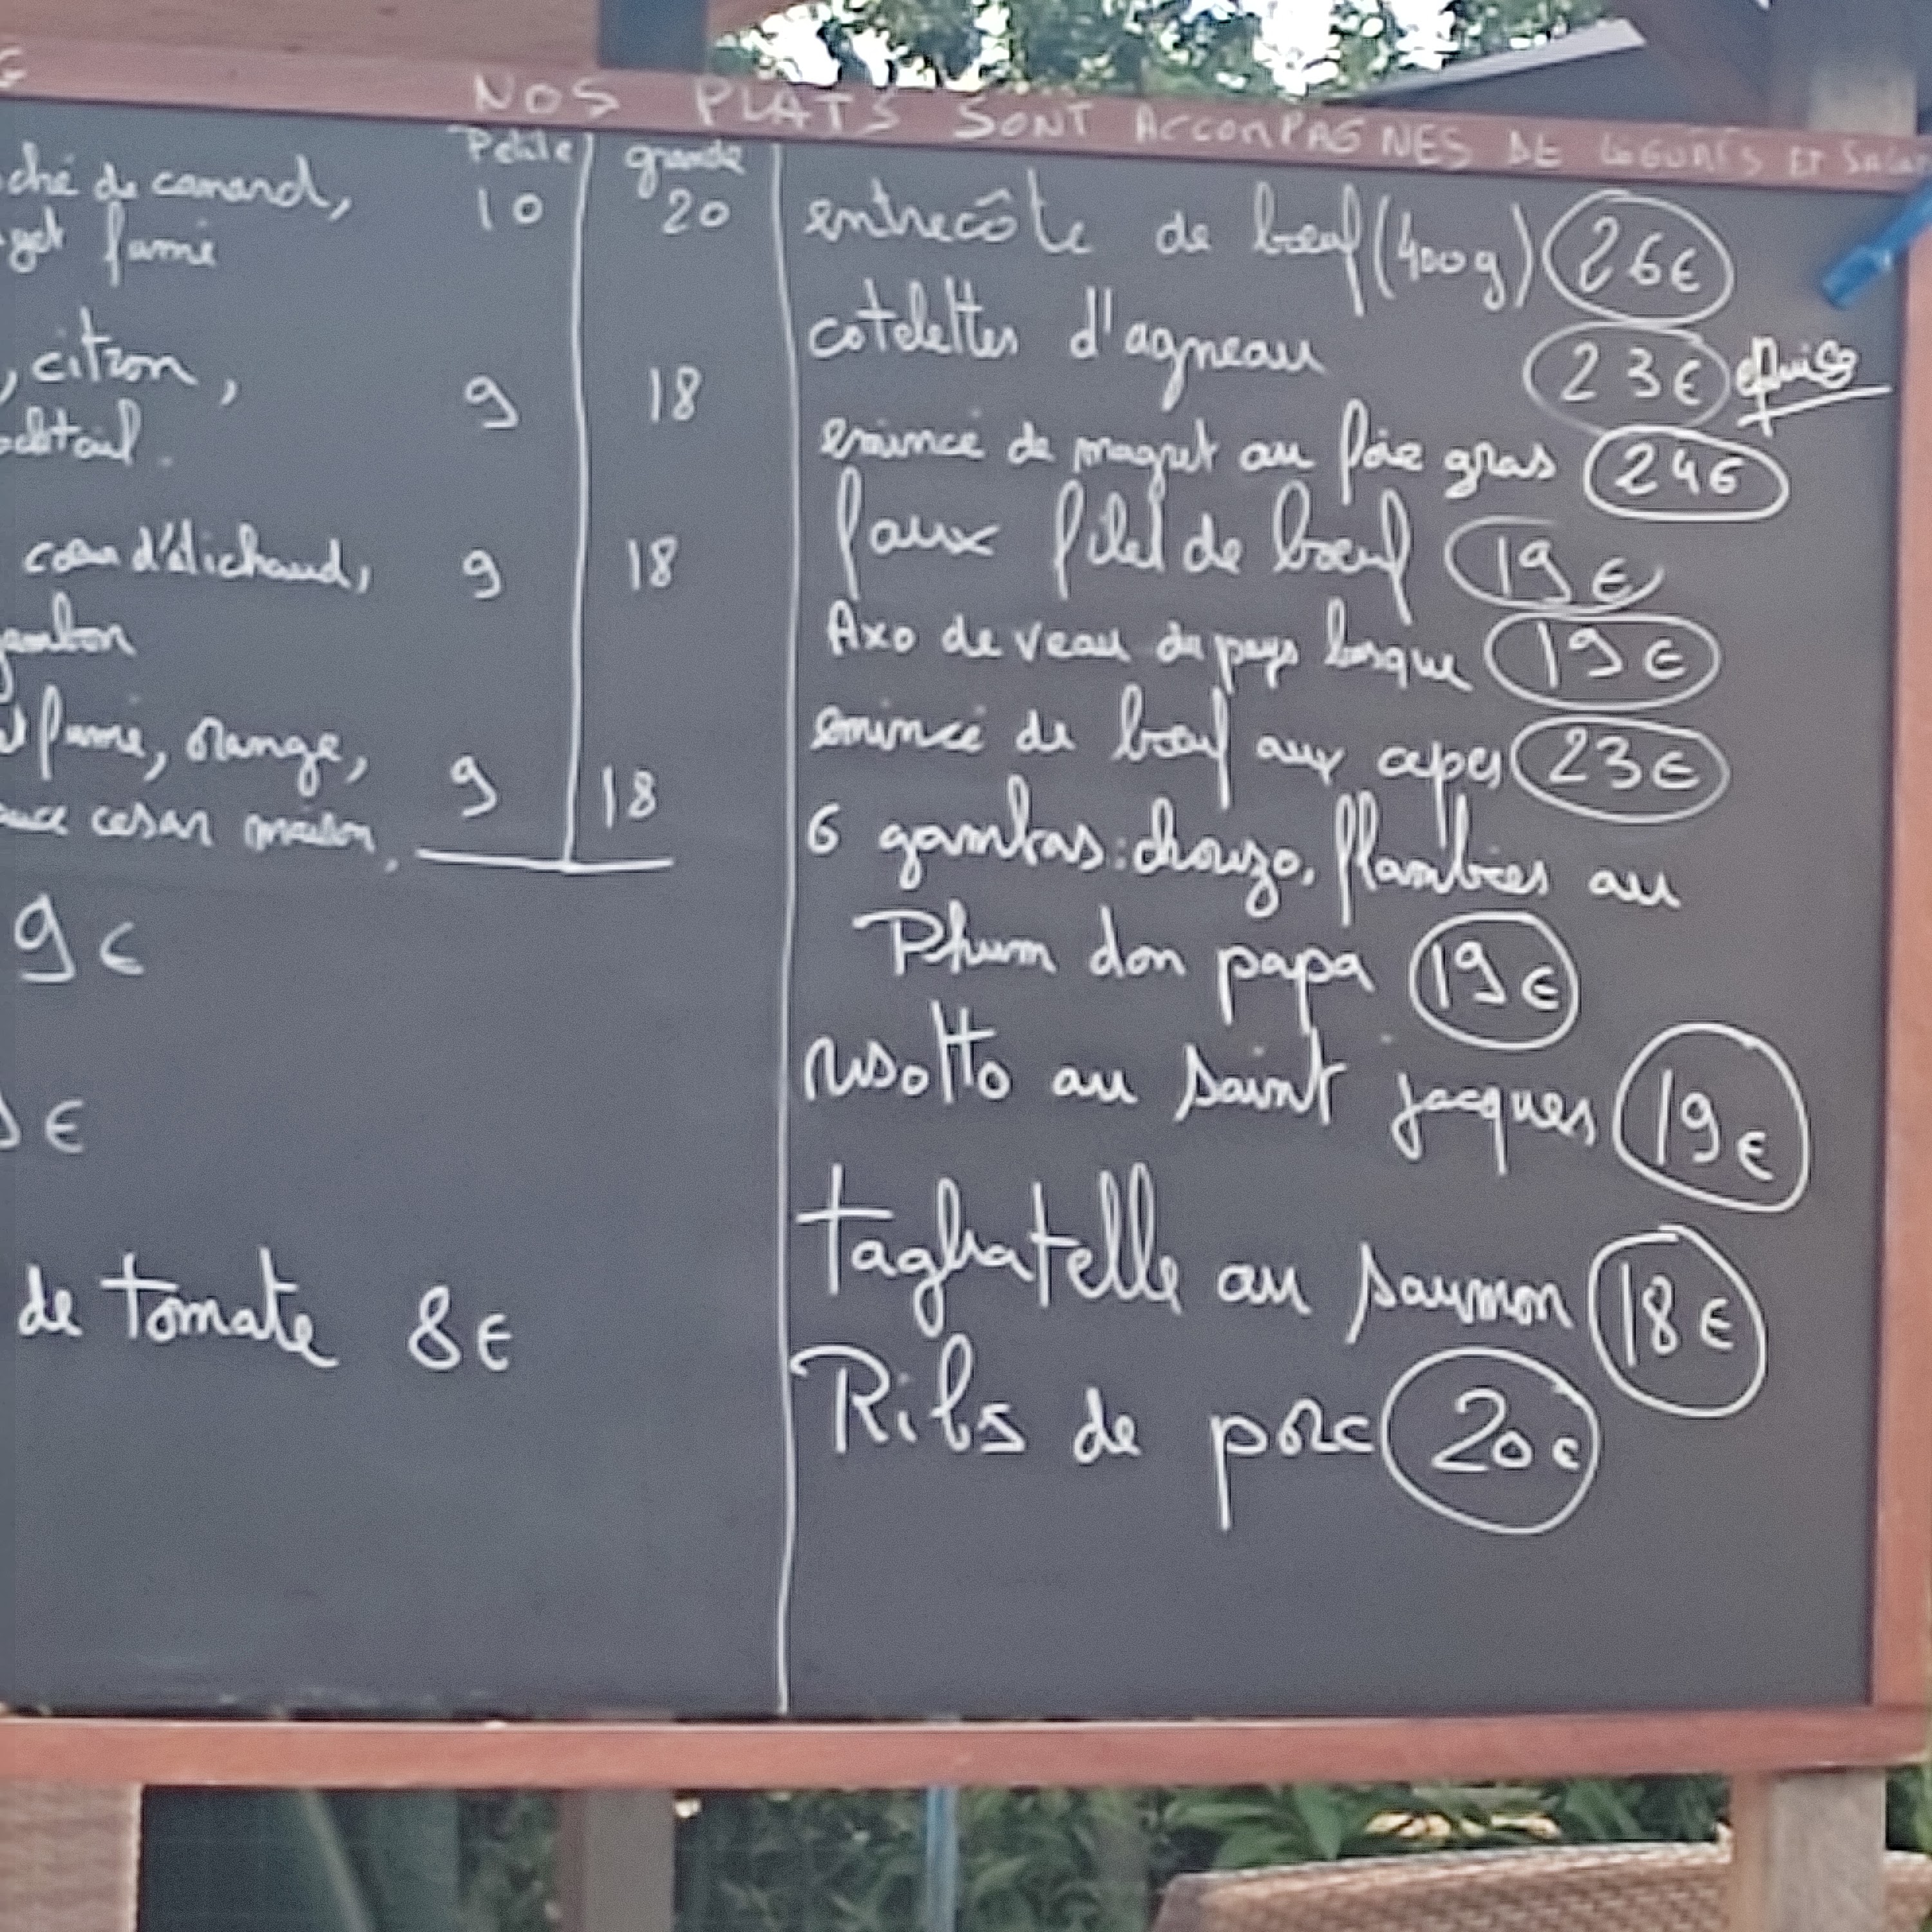 NOS PLATS SONT ACCOMPAGNES DE LEGUMES ET
Petite grande
ché de canard, 10 20
get fumé
, citron, 9 18
ocktail.
coeur d'atichaud, 9 18
jambon
fumé, orange, 9 18
cesar maison.
9€
€
de tomate 8€
entrecôte de bœuf (400g) 26€
cotelettes d'agneau 23€ épuisé
emincé de magret au foie gras 24€
faux filet de bœuf 19€
Axo de veau du pays basque 19€
emincé de bœuf aux cepes 23€
6 gambas: chorizo, flambées au
Rhum don papa 19€
risotto au saint jacques 19€
tagliatelle au saumon 18€
Ribs de porc 20€